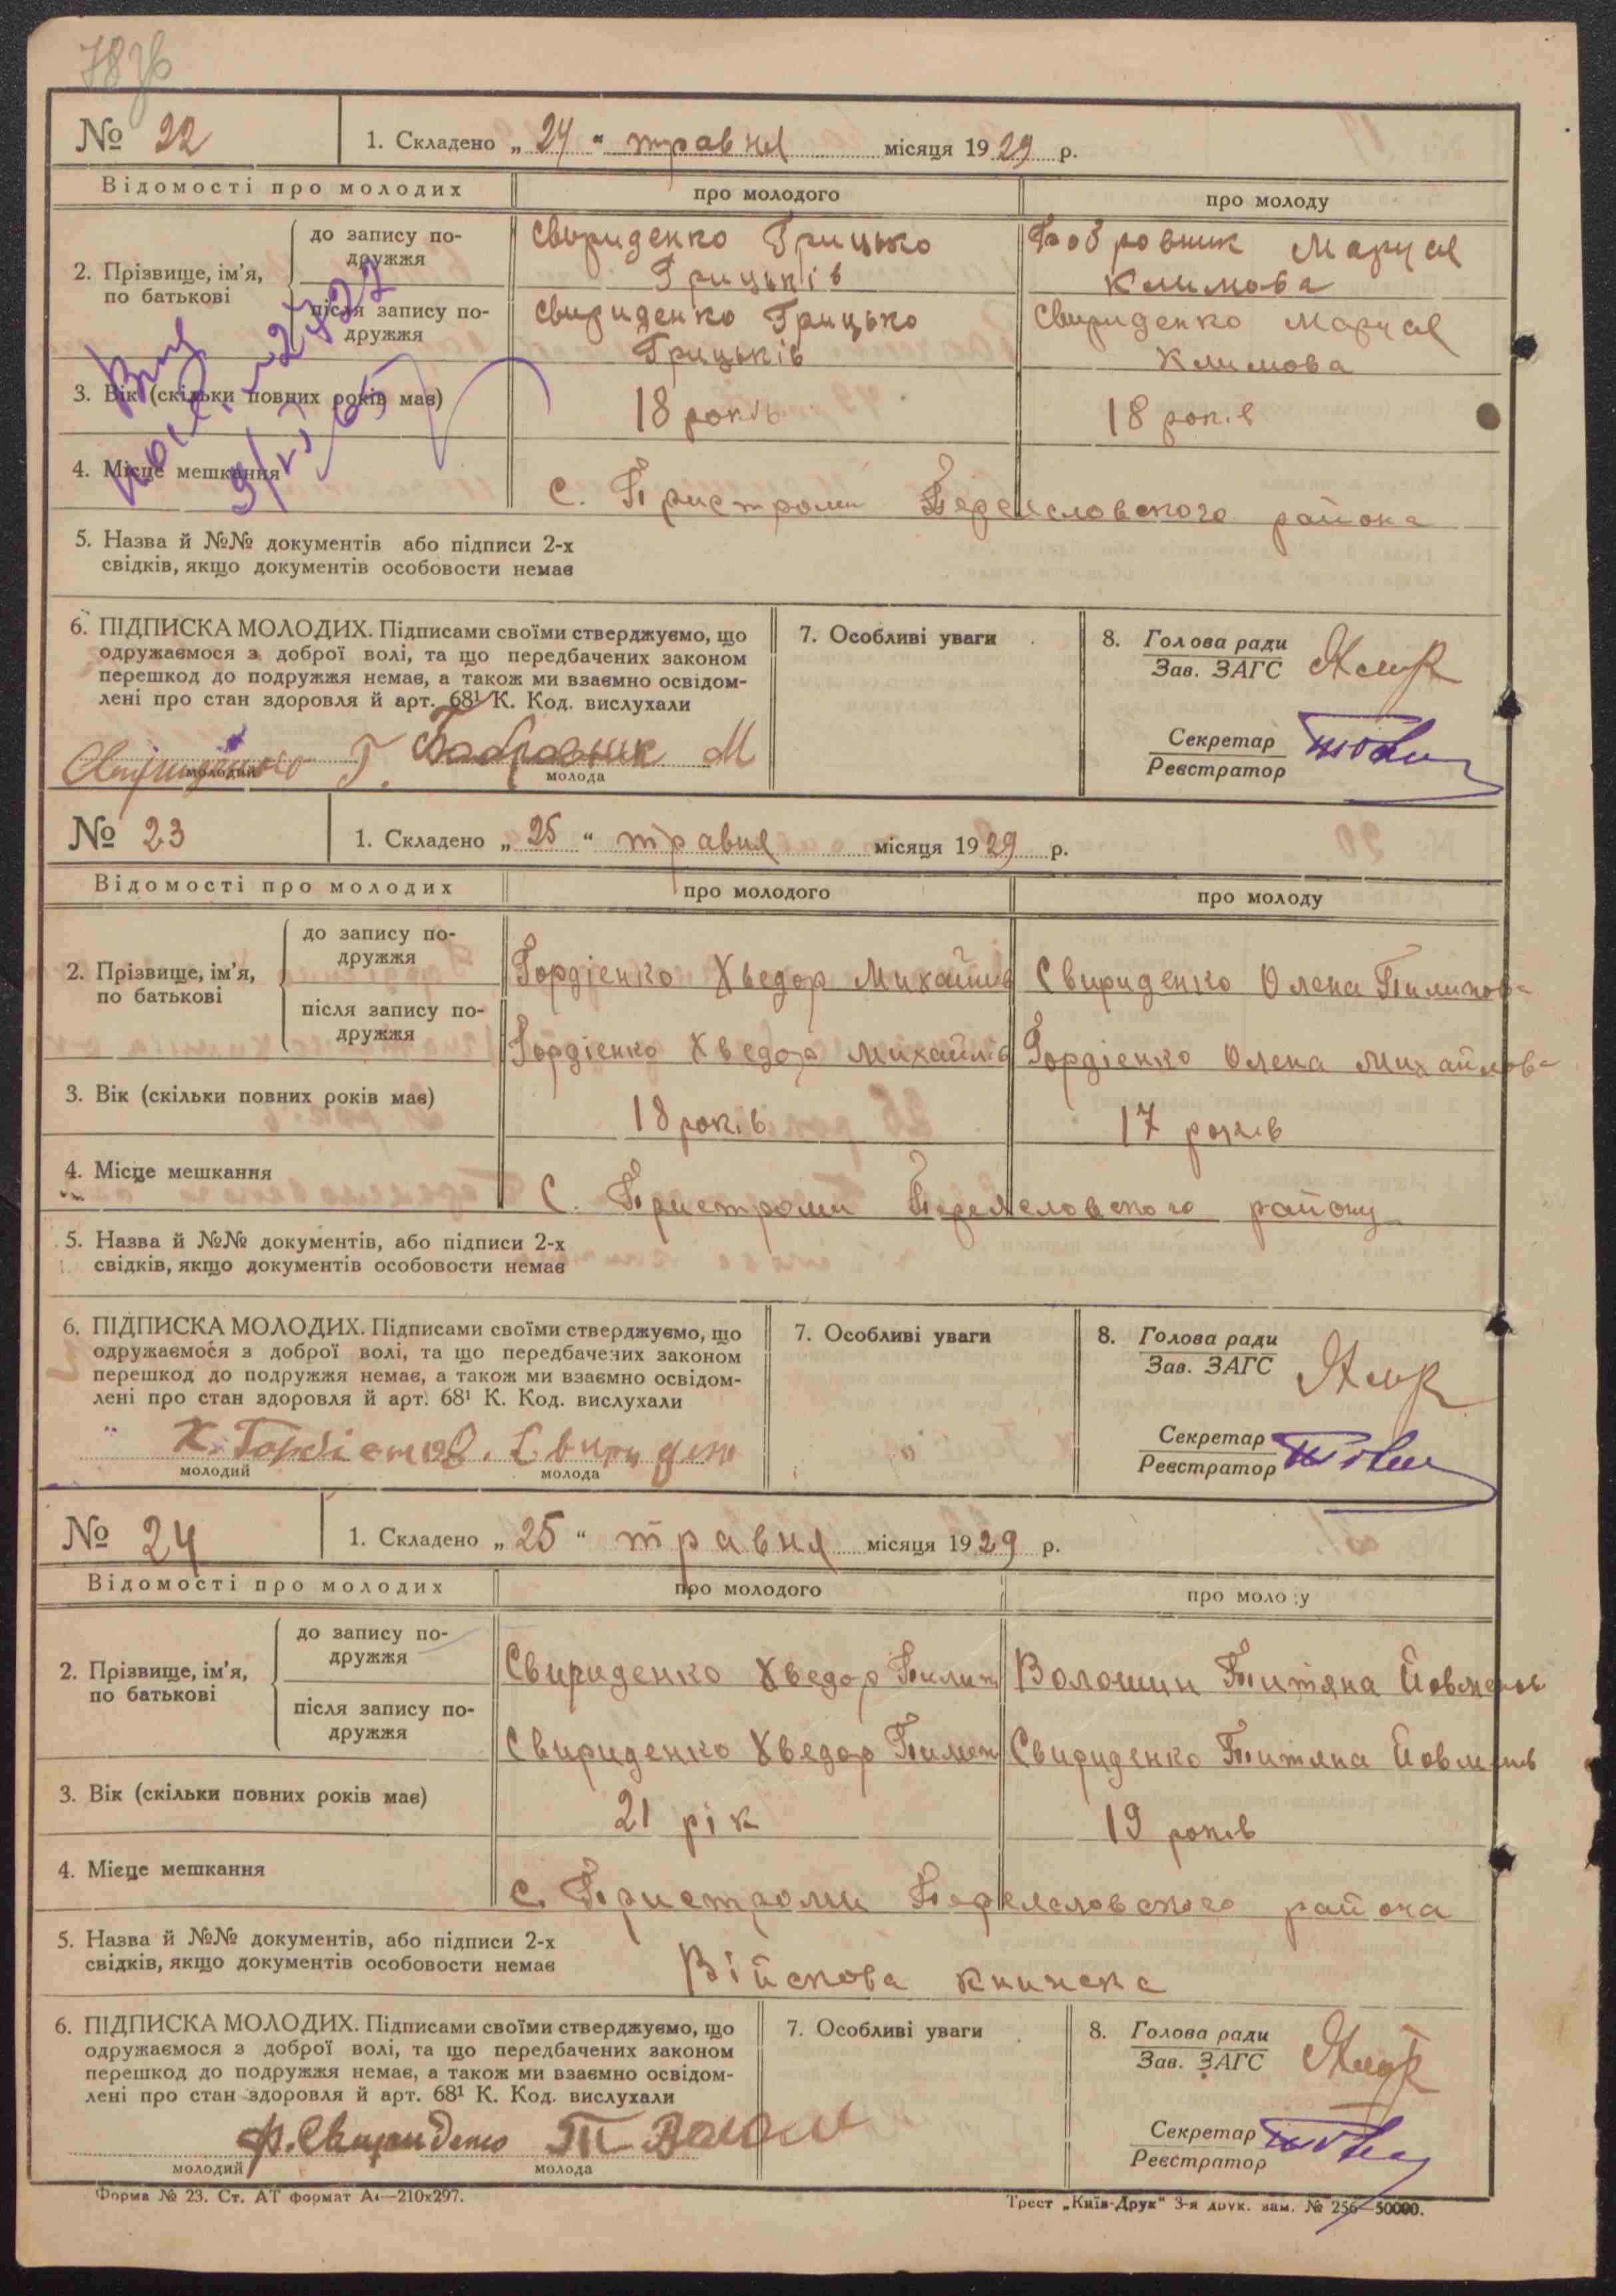 78 зв
№ 22
1. Складено „ 24 “ травня місяця 1929 р.
Відомості про молодих
про молодого
про молоду
2. Прізвище, ім’я, по батькові
до запису подружжя
Свириденко Грицько
Грицьків
Бобровник Маруся
Климова
після запису подружжя
Свириденко Грицько
Грицьків
Свириденко Маруся
Климова
3. Вік (скільки повних років має)
18 років
18 років
4. Місце мешкання
с. Пристроми Переясловского района
5. Назва й №№ документів або підписи 2-х
свідків, якщо документів особовости немає
6. ПІДПИСКА МОЛОДИХ. Підписами своїми стверджуємо, що
одружаємося з доброї волі, та що передбачених законом
перешкод до подружжя немає, а також ми взаємно освідом-
лені про стан здоровля й арт. 68¹ К. Код. вислухали
Свириденко Г. Бобровник М
молодий
молода
7. Особливі уваги
8. Голова ради
Зав. ЗАГС
Секретар
Реєстратор
№ 23
1. Складено „ 25 “ травня місяця 1929 р.
Відомості про молодих
про молодого
про молоду
2. Прізвище, ім’я,
по батькові
до запису по-
дружжя
Гордієнко Хведор Михайлів
Свириденко Олена Пилипова
після запису по-
дружжя
Гордієнко Хведор Михайлів
Гордієнко Олена Михайлова
3. Вік (скільки повних років має)
18 років
17 років
4. Місце мешкання
С. Пристроми Переясловского району
5. Назва й №№ документів, або підписи 2-х
свідків, якщо документів особовости немає
6. ПІДПИСКА МОЛОДИХ. Підписами своїми стверджуємо, що
одружаємося з доброї волі, та що передбачених законом
перешкод до подружжя немає, а також ми взаємно освідом-
лені про стан здоровля й арт. 68¹ К. Код. вислухали
Х. Гордієнко
молодий
молода
7. Особливі уваги
8. Голова ради
Зав. ЗАГС
Секретар
Реєстратор
№ 24
1. Складено „ 25 “ травня місяця 1929 р.
Відомості про молодих
про молодого
про моло у
2. Прізвище, ім’я,
по батькові
до запису по-
дружжя
Свириденко Хведор Пилип
Волошин Титяна Йовменов
після запису по-
дружжя
Свириденко Хведор Пилип
Свириденко Титяна
3. Вік (скільки повних років має)
21 рік
19 років
4. Місце мешкання
с. Пристроми Переясловского района
5. Назва й №№ документів, або підписи 2-х
свідків, якщо документів особовости немає
Війскова книжка
6. ПІДПИСКА МОЛОДИХ. Підписами своїми стверджуємо, що
одружаємося з доброї волі, та що передбачених законом
перешкод до подружжя немає, а також ми взаємно освідом-
лені про стан здоровля й арт. 68¹ К. Код. вислухали
Ф. Свириденко Т Волош
молодий
молода
7. Особливі уваги
8. Голова ради
Зав. ЗАГС
Секретар
Реєстратор
Форма № 23. Ст. АТ формат А₄—210х297.
Трест „Київ-Друк“ 3-я друк. зам. № 256—50000.